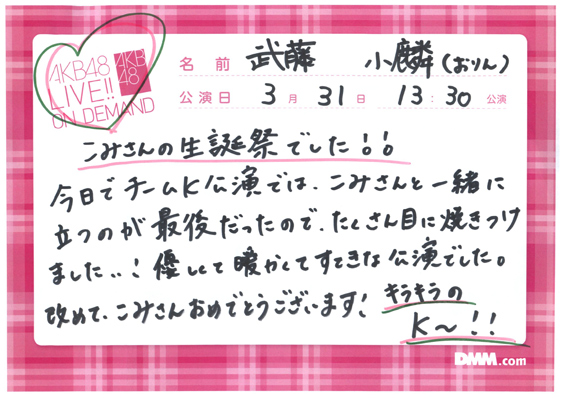 AKB48
LIVE!!
ON DEMAND
AKB
48
名前 武藤 小麟(おりん)
公演日 3月31日 13:30公演
こみさんの生誕祭でした!!
今日でチームK公演では、こみさんと一緒に
立つのが最後だったので、たくさん目に焼きつけ
ました..! 優しくて暖かくてすてきな公演でした。
改めて、こみさんおめでとうございます!
キラキラの
K〜!!
DMM.com